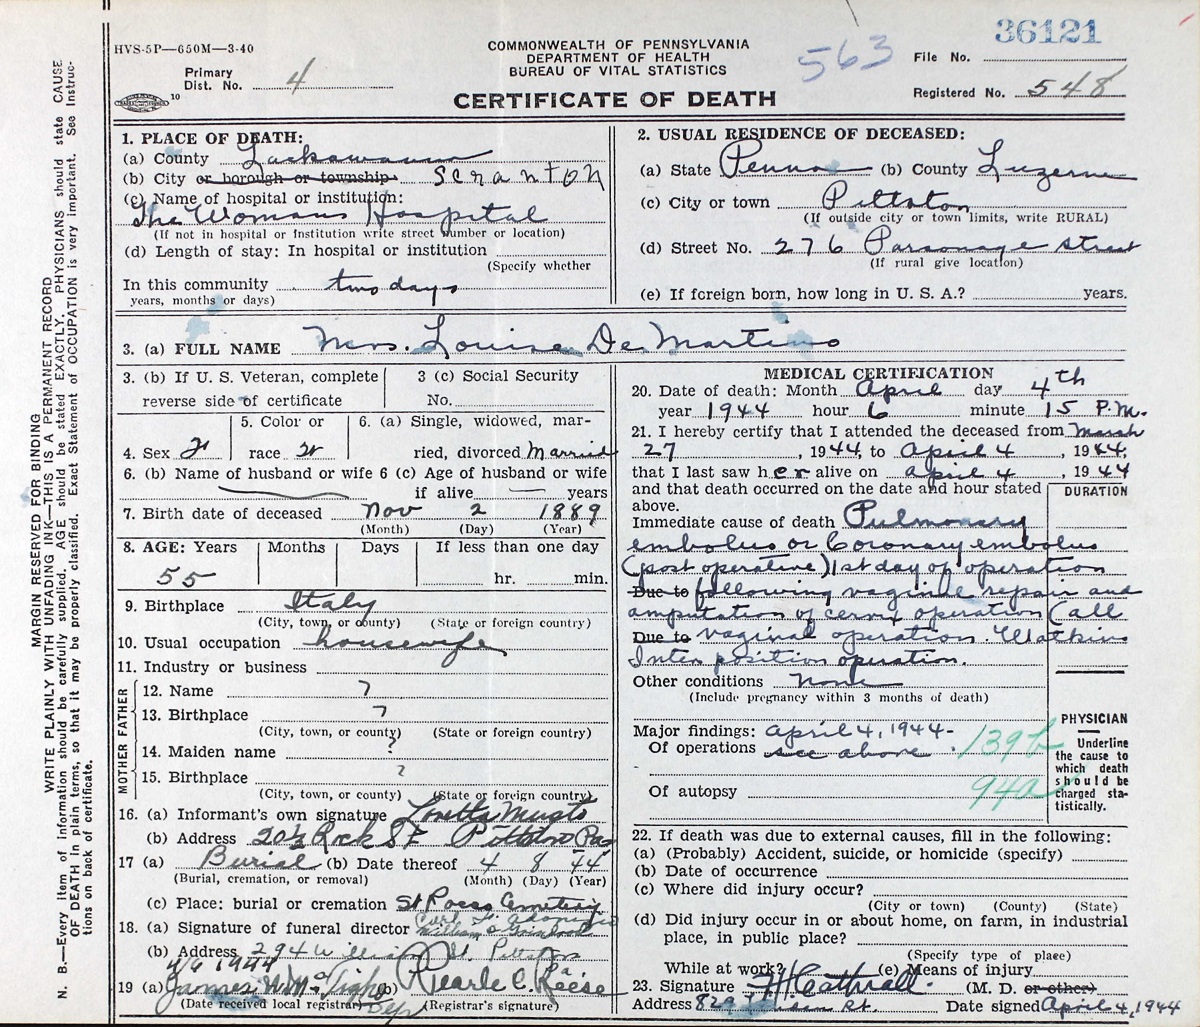 HVS-5P—650M—3-40
Primary
Dist. No. 4
10
COMMONWEALTH OF PENNSYLVANIA
DEPARTMENT OF HEALTH
BUREAU OF VITAL STATISTICS
CERTIFICATE OF DEATH
563
36121
File No.
Registered No. 548
MARGIN RESERVED FOR BINDING
WRITE PLAINLY WITH UNFADING INK—THIS IS A PERMANENT RECORD
N. B.—Every item of information should be carefully supplied. AGE should be stated EXACTLY. PHYSICIANS should state CAUSE
OF DEATH in plain terms, so that it may be properly classified. Exact Statement of OCCUPATION is very important. See Instruc-
tions on back of certificate.
1. PLACE OF DEATH:
(a) County Lackawanna
(b) City or borough or township Scranton
(c) Name of hospital or institution:
The Womans Hospital
(If not in hospital or institution write street number or location)
(d) Length of stay: In hospital or institution
(Specify whether
In this community two days
years, months or days)
2. USUAL RESIDENCE OF DECEASED:
(a) State Penna (b) County Luzerne
(c) City or town Pittston
(If outside city or town limits, write RURAL)
(d) Street No. 276 Parsonage street
(If rural give location)
(e) If foreign born, how long in U. S. A.? years.
3. (a) FULL NAME Mrs. Louise De Martino
3. (b) If U. S. Veteran, complete
reverse side of certificate
3 (c) Social Security
No.
4. Sex
5. Color or
race
6. (a) Single, widowed, mar-
ried, divorced Married
6. (b) Name of husband or wife 6 (c) Age of husband or wife
if alive — years
7. Birth date of deceased Nov 2 1889
(Month) (Day) (Year)
8. AGE: Years Months Days If less than one day
55 hr. min.
9. Birthplace Italy
(City, town, or county) (State or foreign country)
10. Usual occupation housewife
11. Industry or business
FATHER
12. Name ?
13. Birthplace ?
(City, town, or county) (State or foreign country)
MOTHER
14. Maiden name ?
15. Birthplace ?
(City, town, or county) (State or foreign country)
16. (a) Informant's own signature Loretta
(b) Address 20½ Rock St Pittston Pa
17 (a) Burial (b) Date thereof 4 8 44
(Burial, cremation, or removal) (Month) (Day) (Year)
(c) Place: burial or cremation St Roccs Cemetery
18. (a) Signature of funeral director
(b) Address 294 William St Pittston Pa
4/6 1944
19 (a) James (b) Pearle C. Reese
(Date received local registrar) Dep (Registrar's signature)
MEDICAL CERTIFICATION
20. Date of death: Month April day 4th
year 1944 hour 6 minute 15 P.M.
21. I hereby certify that I attended the deceased from March
27, 1944, to April 4, 1944;
that I last saw her alive on April 4, 1944
and that death occurred on the date and hour stated
above.
DURATION
Immediate cause of death Pulmonary
embolus or Coronary embolus
(post operative) 1st day of operation
Due to following vaginal repair and
amputation of cervix operation (all
Due to vaginal operation. Watkins
Inter position operation.
Other conditions none
(Include pregnancy within 3 months of death)
Major findings: April 4, 1944-
Of operations see above. 139b
Of autopsy 94a
PHYSICIAN
Underline
the cause to
which death
should be
charged sta-
tistically.
22. If death was due to external causes, fill in the following:
(a) (Probably) Accident, suicide, or homicide (specify)
(b) Date of occurrence
(c) Where did injury occur?
(City or town) (County) (State)
(d) Did injury occur in or about home, on farm, in industrial
place, in public place?
(Specify type of place)
While at work? (e) Means of injury
23. Signature H Cathrall. (M. D. or other)
Address 829 St. Date signed April 4, 1944